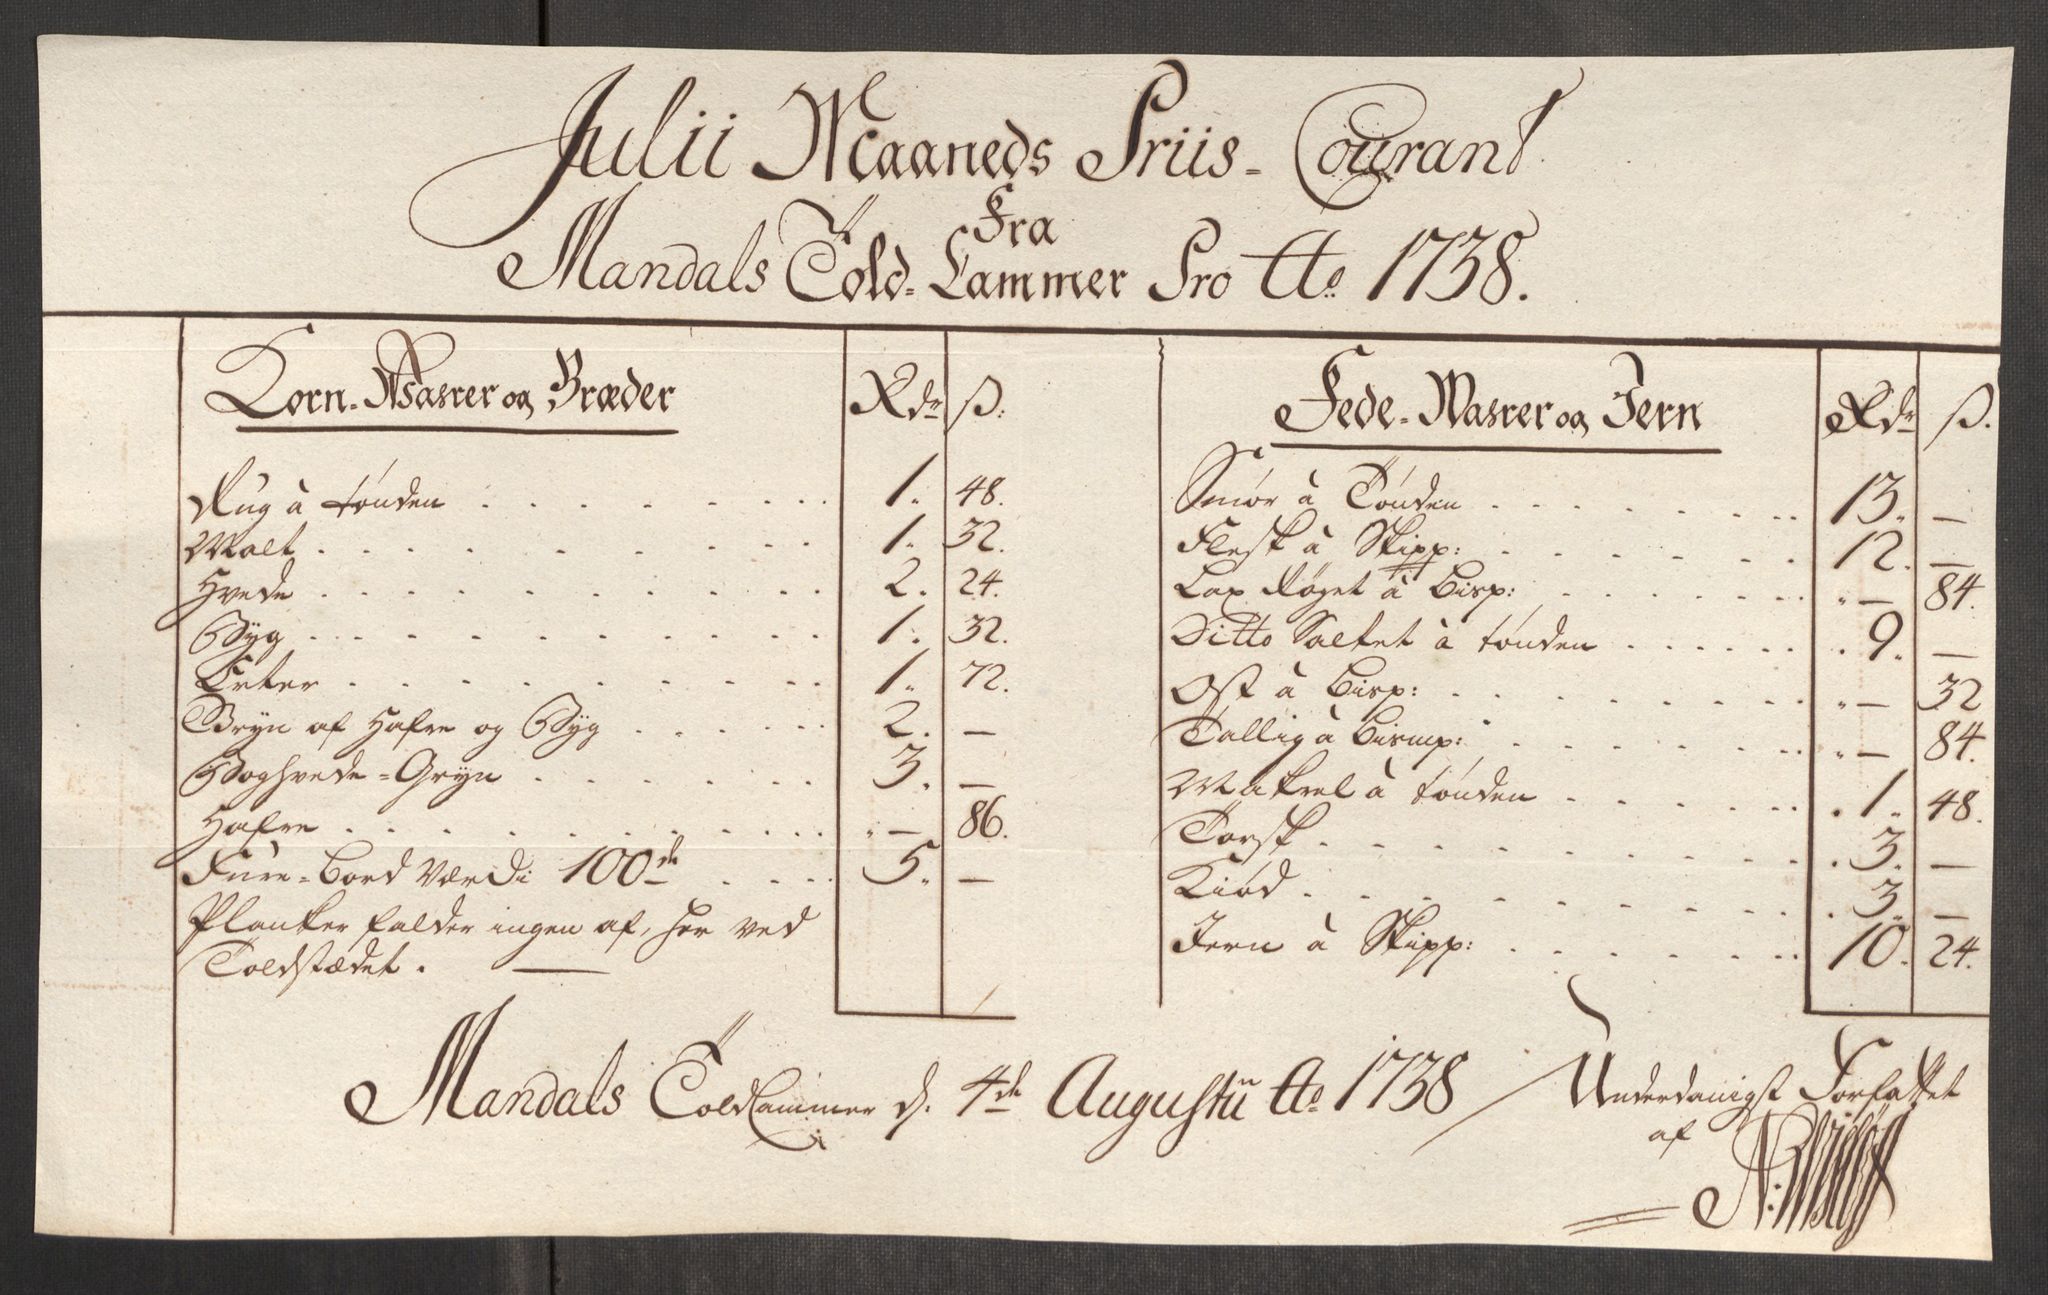 Julii Maaneds Priis-Courant
Fra
Mandals Told-Cammer Pro Ao 1738.
Korn-Wahrer og Bræder Rdr ß:
Rug à tønden 1. 48.
Malt 1. 32.
Hvede 2. 24.
Byg 1. 32.
Erter 1. 72.
Gryn af Hafre og Byg 2. —
Boghvede-Gryn 3. —
Hafre — 86.
Fure-Bord Værdi 100de 5. —
Planker falder ingen af, her ved
Toldstædet. —
Fede-Wahrer og Jern Rdr ß.
Smør à Tønden 13. —
Flesk à Skipp: 12. —
Lax Røget à Bisp: — 84.
Ditto Saltet à tønden 9. —
Ost à Bisp: — 32
Tallig à Bismp: — 84.
Makrel à tønden 1. 48.
Torsk 3. —
Kiød 3. —
Jern à Skipp: 10. 24.
Mandals ToldCammer d. 4de Augustii Ao 1738 / Underdanigst Forfattet
af